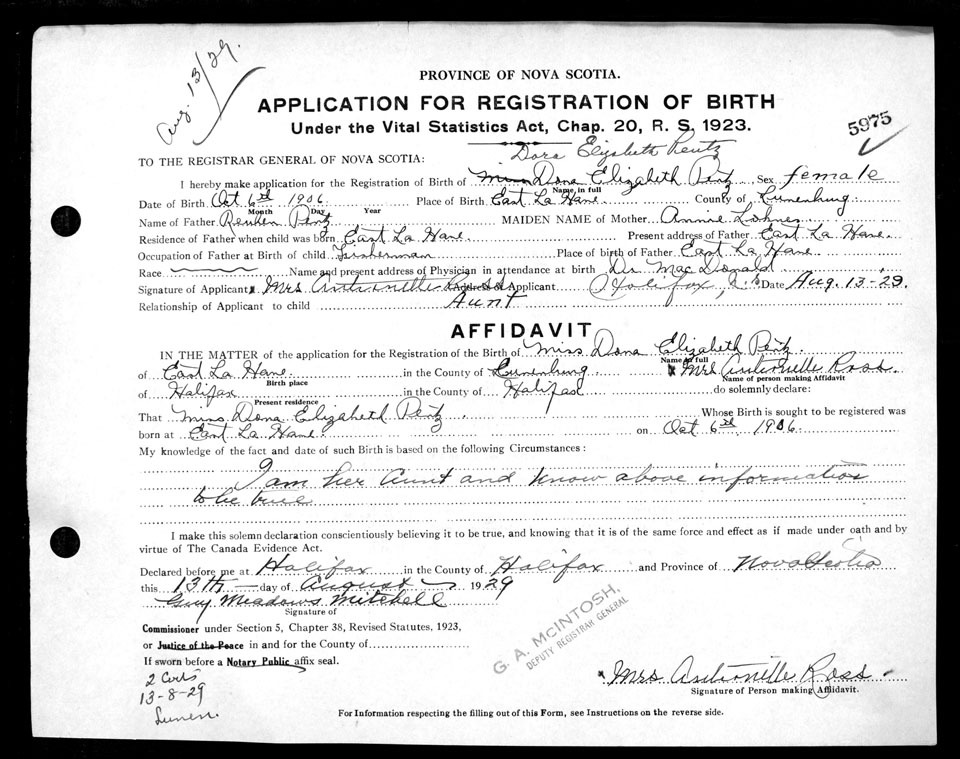 Aug. 13/29.
PROVINCE OF NOVA SCOTIA.
APPLICATION FOR REGISTRATION OF BIRTH
Under the Vital Statistics Act, Chap. 20, R. S. 1923.
5975
Dora Elizabeth Pentz
TO THE REGISTRAR GENERAL OF NOVA SCOTIA:
I hereby make application for the Registration of Birth of Miss Dora Elizabeth Pentz Sex female
Name, in full
Date of Birth Oct 6th 1906 Place of Birth East La Have County of Lunenburg
Month Day Year
Name of Father Reuben Pentz MAIDEN NAME of Mother Annie Lohnes
Residence of Father when child was born East La Have Present address of Father East La Have
Occupation of Father at Birth of child Fisherman Place of birth of Father East La Have
Race Name and present address of Physician in attendance at birth Dr. MacDonald
Signature of Applicant x Mrs Antionette Ross Address of Applicant Halifax, N.S Date Aug. 13-29.
Relationship of Applicant to child Aunt
AFFIDAVIT
IN THE MATTER of the application for the Registration of the Birth of Miss Dora Elizabeth Pentz.
Name in full
of East La Have in the County of Lunenburg x Mrs Antionette Ross
Birth place Name of person making Affidavit
of Halifax in the County of Halifax do solemnly declare:
Present residence
That Miss Dora Elizabeth Pentz Whose Birth is sought to be registered was
born at East La Have on Oct 6th 1906
My knowledge of the fact and date of such Birth is based on the following Circumstances:
I am her Aunt and know above information
to be true
I make this solemn declaration conscientiously believing it to be true, and knowing that it is of the same force and effect as if made under oath and by
virtue of The Canada Evidence Act.
Declared before me at Halifax in the County of Halifax and Province of Nova Scotia
this 13th day of August 1929
Guy Meadows Mitchell
Signature of
G. A. McINTOSH,
DEPUTY REGISTRAR GENERAL
Commissioner under Section 5, Chapter 38, Revised Statutes, 1923,
or Justice of the Peace in and for the County of
If sworn before a Notary Public affix seal.
x Mrs Antionette Ross
Signature of Person making Affidavit.
2 Certs
13-8-29
Lunen.
For Information respecting the filling out of this Form, see Instructions on the reverse side.